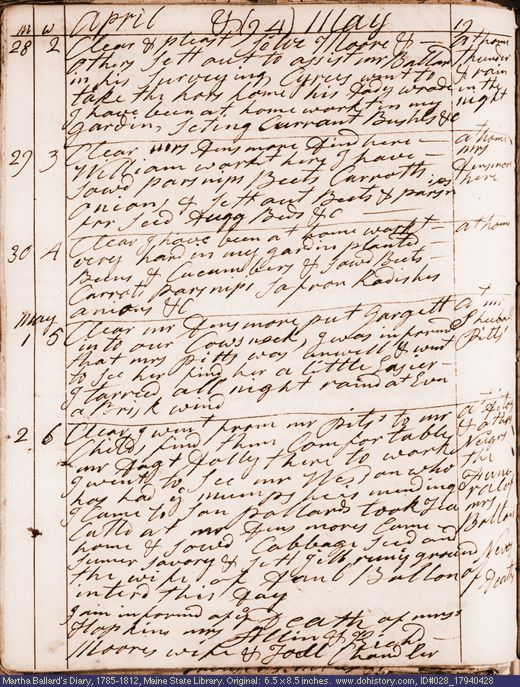 m w April & (94) May 12
28 2 Clear & pleast Solve Moore & - at home
others Sett out to assist mr Ballard thunder
in his Surveying Cyrus went to & rain
take the hors home his Dady wrode in the
I have been at home workt in my night
Garden, Seting Currant Bushes &c
29 3 Clear mrs Densmore Dind here - at home
William workt here I have mrs
Sowd parsnips Beets Carrotts Densmore
onions, & Sett out Beets & parsnips here
for Seed Dugg Beds &c
30 4 Clear I have been at home workt - at home
very hard in my gardin planted -
Beens & Cucumbers & Sowd Beets -
Carrot parsnips Safron Radishes
onions &c
May
1 5 Clear mr Densmore put Gargett at mr
into our Cows neck, I was informd Shubal
that mrs Pitts was unwell & went Pitts
to See her find her a little Easier -
I tarried all night raind at Evn
a Brisk wind
2 6 Clear I went from mr Pits's to mr at Pits
Childs, find them Comfortable & other
mr Dagt Dolly there to work Neibrs
I went to See mr Wesson who the
has had ye mumps he is minding Funeral of
I Came to Son Ballards took Tea mrs
Calld at mr Densmores Came - Ballon
home & Sowd Cabbage Seed and
Sumer Savory & Sett
the wife of Danl Ballon
interd this Day
I am informd of ye Death of mrss
Hopkins mrs Allin &
Moores wife & Joell Chandler
News of Deaths
Martha Ballard's Diary, 1785-1812, Maine State Library. Original: 6.5 x 8.5 inches. www.dohistory.com, ID#028_17940428